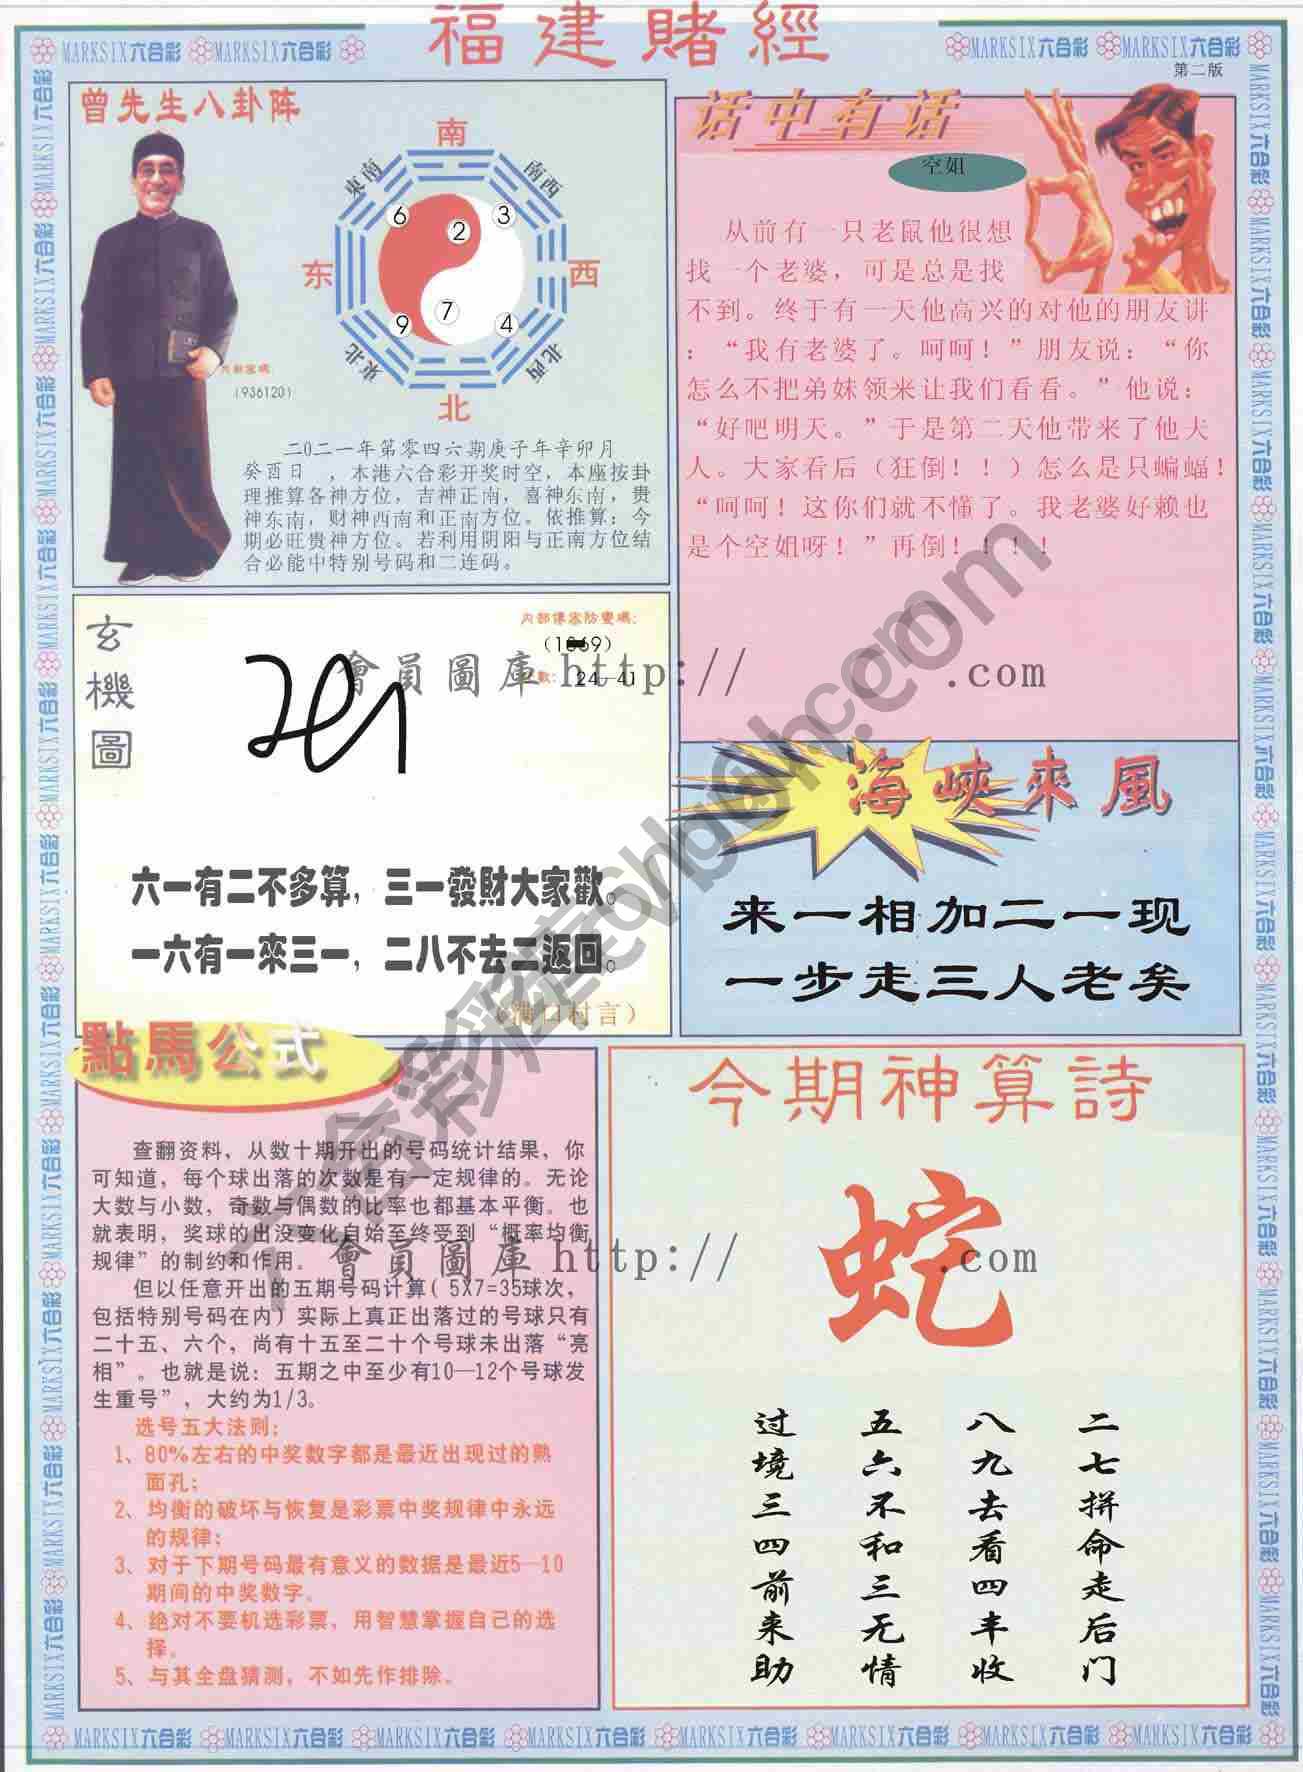 福建賭經
MARKSIX六合彩 MARKSIX六合彩
MARKSIX六合彩 MARKSIX六合彩
第二版
曾先生八卦阵
南
東南
南西
6
2
3
东
西
7
9
4
東北
北西
北
(936120)
二0二一年第零四六期庚子年辛卯月
癸酉日 ，本港六合彩开奖时空，本座按卦
理推算各神方位，吉神正南，喜神东南，贵
神东南，财神西南和正南方位。依推算：今
期必旺贵神方位。若利用阴阳与正南方位结
合必能中特别号码和二连码。
话中有话
空姐
从前有一只老鼠他很想
找一个老婆，可是总是找
不到。终于有一天他高兴的对他的朋友讲
：“我有老婆了。呵呵！”朋友说：“你
怎么不把弟妹领来让我们看看。”他说：
“好吧明天。”于是第二天他带来了他夫
人。大家看后（狂倒！！）怎么是只蝙蝠！
“呵呵！这你们就不懂了。我老婆好赖也
是个空姐呀！”再倒！！！！
玄機圖
内部傳密防變碼：
24—41
會員圖庫 http:// .com
六一有二不多算，三一發財大家歡。
一六有一來三一，二八不去二返回。
（满口村言）
海峽來風
来一相加二一现
一步走三人老矣
點馬公式
查翻资料，从数十期开出的号码统计结果，你
可知道，每个球出落的次数是有一定规律的。无论
大数与小数，奇数与偶数的比率也都基本平衡。也
就表明，奖球的出没变化自始至终受到“概率均衡
规律”的制约和作用。
會員圖庫 http:// .com
但以任意开出的五期号码计算（5X7=35球次，
包括特别号码在内）实际上真正出落过的号球只有
二十五、六个，尚有十五至二十个号球未出落“亮
相”。也就是说：五期之中至少有10—12个号球发
生重号”，大约为1/3。
选号五大法则：
1、80%左右的中奖数字都是最近出现过的熟
面孔；
2、均衡的破坏与恢复是彩票中奖规律中永远
的规律；
3、对于下期号码最有意义的数据是最近5—10
期间的中奖数字。
4、绝对不要机选彩票，用智慧掌握自己的选
择。
5、与其全盘猜测，不如先作排除。
今期神算詩
蛇
二七拼命走后门
八九去看四丰收
五六不和三无情
过境三四前来助
MARKSIX六合彩 MARKSIX六合彩 MARKSIX六合彩 MARKSIX六合彩 MARKSIX六合彩 MARKSIX六合彩 MARKSIX六合彩 MARKSIX六合彩